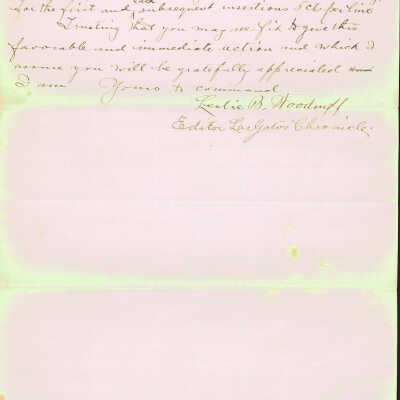 for the first and each subsequent insertions 5 cts per line
Trusting that you may see fit to give this
favorable and immediate action and which I
assure you will be gratefully appreciated
I am Yours to command
Leslie B. Woodruff
Editor Los Gatos Chronicle.